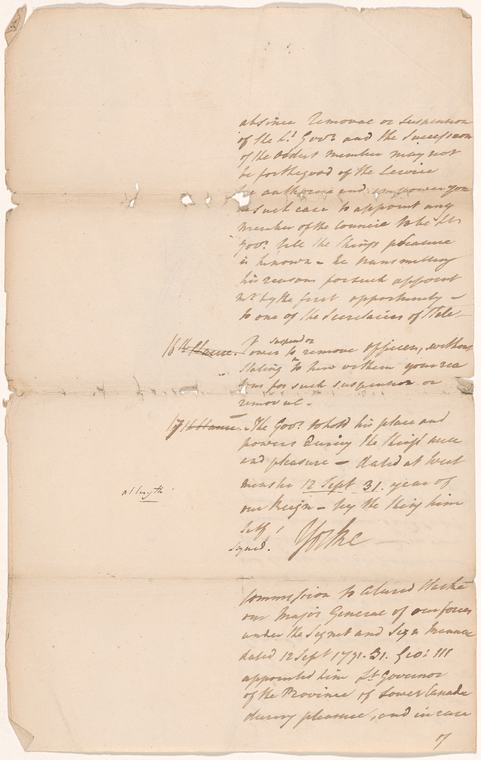 absence removal or suspension
of the Lt. Govr and the Succession
of the oldest member may not
be for the good of the Service
he authorize and empower you
in such case to appoint any
member of the Council to be Lt.
Govr. till the Kings pleasure
is known – he transmitting
his reasons for such appoint
mt. by the first opportunity –
to one of the Secretaries of State
or suspend
16th Clause. Power to remove Officers, without
stating to him within your rea
sons for such suspension or
removal –
17th Clause. The Govr. to hold his place and
powers during the Kings will
and pleasure – dated at West
minster 12 Sept 31. year of
at length
our Reign – by the King him
self,
signed. Yorke
Commission to Alured Clarke
our Major General of our forces
under the Signet and Sign Manual
dated 12 Sept 1791. 31. Geo: III
appointed him Lt Governor
of the Province of Lower Canada
during pleasure, and in case
of